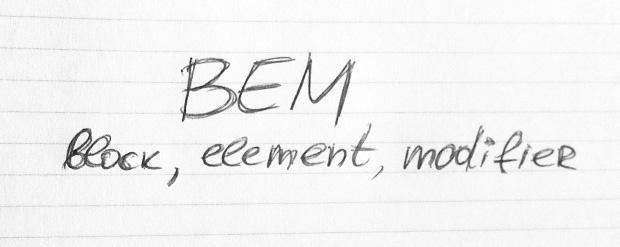 BEM
Block, element, modifier